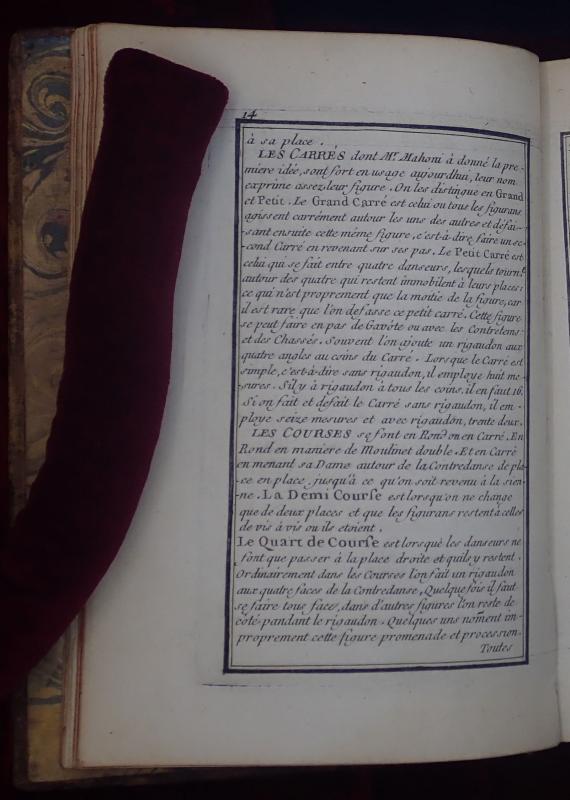 14
à sa place.
LES CARRÉS dont Mr. Mahoni à donné la pre-
miere idée, sont fort en usage aujourdhui, leur nom
exprime assez leur figure. On les distingue en Grand
et Petit. Le Grand Carré est celui ou tous les figurans
agissent carrément autour les uns des autres et défai-
sant ensuite cette même figure, c'est-à-dire faire un se-
cond Carré en revenant sur ses pas. Le Petit Carré est
celui qui se fait entre quatre danseurs, lesquels tourn.t
autour des quatre qui restent immobilent à leurs places:
ce qui n'est proprement que la moitie de la figure, car
il est rare que l'on defasse ce petit carré. Cette figure
se peut faire en pas de Gavôte ou avec les Contretems
et des Chassés. Souvent l'on ajoute un rigaudon aux
quatre angles au coins du Carré. Lorsque le Carré est
simple, c'est-à-dire sans rigaudon, il employe huit me-
sures. S'il y à rigaudon à tous les coins, il en faut 16.
Si on fait et defait le Carré sans rigaudon, il em-
ploye seize mesures et avec rigaudon, trente deux.
LES COURSES se font en Rond ou en Carré. En
Rond en maniere de Moulinet double. Et en Carré
en menant sa Dame autour de la Contredanse de pla-
ce en place jusqu'à ce qu'on soit revenu à la sien-
ne. La Demi Course est lorsqu'on ne change
que de deux places et que les figurans restent à celles
de vis à vis ou ils etoient.
Le Quart de Course est lorsque les danseurs ne
font que passer à la place droite et quils y restent.
Ordinairement dans les Courses l'on fait un rigaudon
aux quatre faces de la Contredanse, Quelque fois il faut
se faire tous face, dans d'autres figures l'on reste de
côté pandant le rigaudon. Quelques uns nom̃ent im-
proprement cette figure promenade et procession.
Toutes